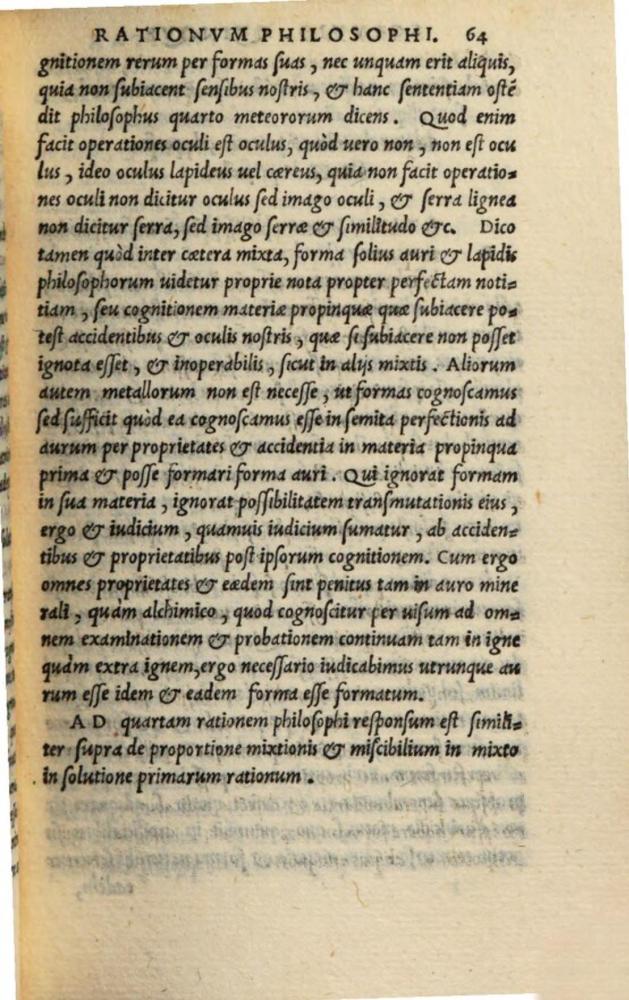 RATIONVM PHILOSOPHI. 64
gnitionem rerum per formas suas, nec unquam erit aliquis,
quia non subiacent sensibus nostris, & hanc sententiam ostē
dit philosophus quarto meteororum dicens. Quod enim
facit operationes oculi est oculus, quòd uero non, non est ocu
lus, ideo oculus lapideus uel cæreus, quia non facit operatio=
nes oculi non dicitur oculus sed imago oculi, & serra lignea
non dicitur serra, sed imago serræ & similitudo &c. Dico
tamen quòd inter cætera mixta, forma solius auri & lapidis
philosophorum uidetur proprie nota propter perfectam noti=
tiam, seu cognitionem materiæ propinquæ quæ subiacere po=
test accidentibus & oculis nostris, quæ si subiacere non posset
ignota esset, & inoperabilis, sicut in alijs mixtis. Aliorum
autem metallorum non est necesse, ut formas cognoscamus
sed sufficit quòd ea cognoscamus esse in semita perfectionis ad
aurum per proprietates & accidentia in materia propinqua
prima & posse formari forma auri. Qui ignorat formam
in sua materia, ignorat possibilitatem transmutationis eius,
ergo & iudicium, quamuis iudicium sumatur, ab acciden=
tibus & proprietatibus post ipsorum cognitionem. Cum ergo
omnes proprietates & eædem sint penitus tam in auro mine
rali, quàm alchimico, quod cognoscitur per uisum ad om=
nem examinationem & probationem continuam tam in igne
quàm extra ignem, ergo necessario iudicabimus utrunque au
rum esse idem & eadem forma esse formatum.
AD quartam rationem philosophi responsum est simili=
ter supra de proportione mixtionis & miscibilium in mixto
in solutione primarum rationum.